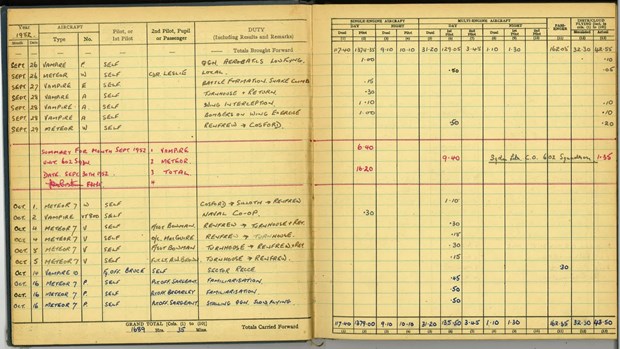 YEAR AIRCRAFT Pilot, or 1st Pilot 2nd Pilot, Pupil or Passenger DUTY (Including Results and Remarks)
1952
Month Date Type No.
Totals Brought Forward
SEPT 26 VAMPIRE P SELF
SEPT 26 METEOR W SELF LESLIE LOCAL.
SEPT 27 VAMPIRE E SELF BATTLE FORMATION SNAKE CLIMB
SEPT 28 VAMPIRE A SELF TURNHOUSE + RETURN
SEPT 28 VAMPIRE A. SELF WING INTERCEPTION
SEPT 28 VAMPIRE A SELF BOMBERS ON WING EXERCISE
SEPT 29 METEOR W SELF RENFREW → COSFORD
SUMMARY FOR MONTH SEPT 1952 1 VAMPIRE
UNIT 602 SQDN 2 METEOR
DATE SEPT 30TH 1952 3 TOTAL
OCT. 1. METEOR 7 W SELF COSFORD → → RENFREW
OCT 2 VAMPIRE SELF NAVAL CO-OP.
OCT 4 METEOR 7 V SELF BOWMAN RENFREW → TURNHOUSE + RET.
OCT 4 METEOR 7 V SELF RENFREW → TURNHOUSE.
OCT METEOR 7 V SELF BOWMAN TURNHOUSE → RENFREW
OCT 5 METEOR 7 V SELF TURNHOUSE → RENFREW.
OCT VAMPIRE BRUCE SELF SECTOR RECCE
OCT 16 METEOR 7 P. SELF SARGEANT FAMILIARISATION.
OCT 16 METEOR 7 P. SELF FAMILIARISATION.
OCT 16 METEOR 7 P. SELF SARGEANT STALLING
GRAND TOTAL [Cols. (1) to (10)]
1689 Hrs. 35 Mins.
Totals Carried Forward
SINGLE-ENGINE AIRCRAFT MULTI-ENGINE AIRCRAFT PASSENGER INSTR/CLOUD FLYING [Incl. in cols. (1) to (10)]
DAY NIGHT DAY NIGHT
Dual Pilot Dual Pilot Dual 1st Pilot 2nd Pilot Dual 1st Pilot 2nd Pilot Simulated Actual
117.40 1374.35 9.10 10.10 31.20 129.05 3.45 1.10 1.30 162.05 32.30 42.55
1.00 .10
.50 .05
.15
.30
1.10 .10
1.10 .05
.50 .20
6.40
9.40 C.O. 602 Squadron 1.35
16.20
1.10
.30
.30
.15
.30
.15
30
.45
.50
.50
117.40 1379.00 9.10 10.10 31.20 135.50 3.45 1.10 1.30 162.35 32.30 43.50